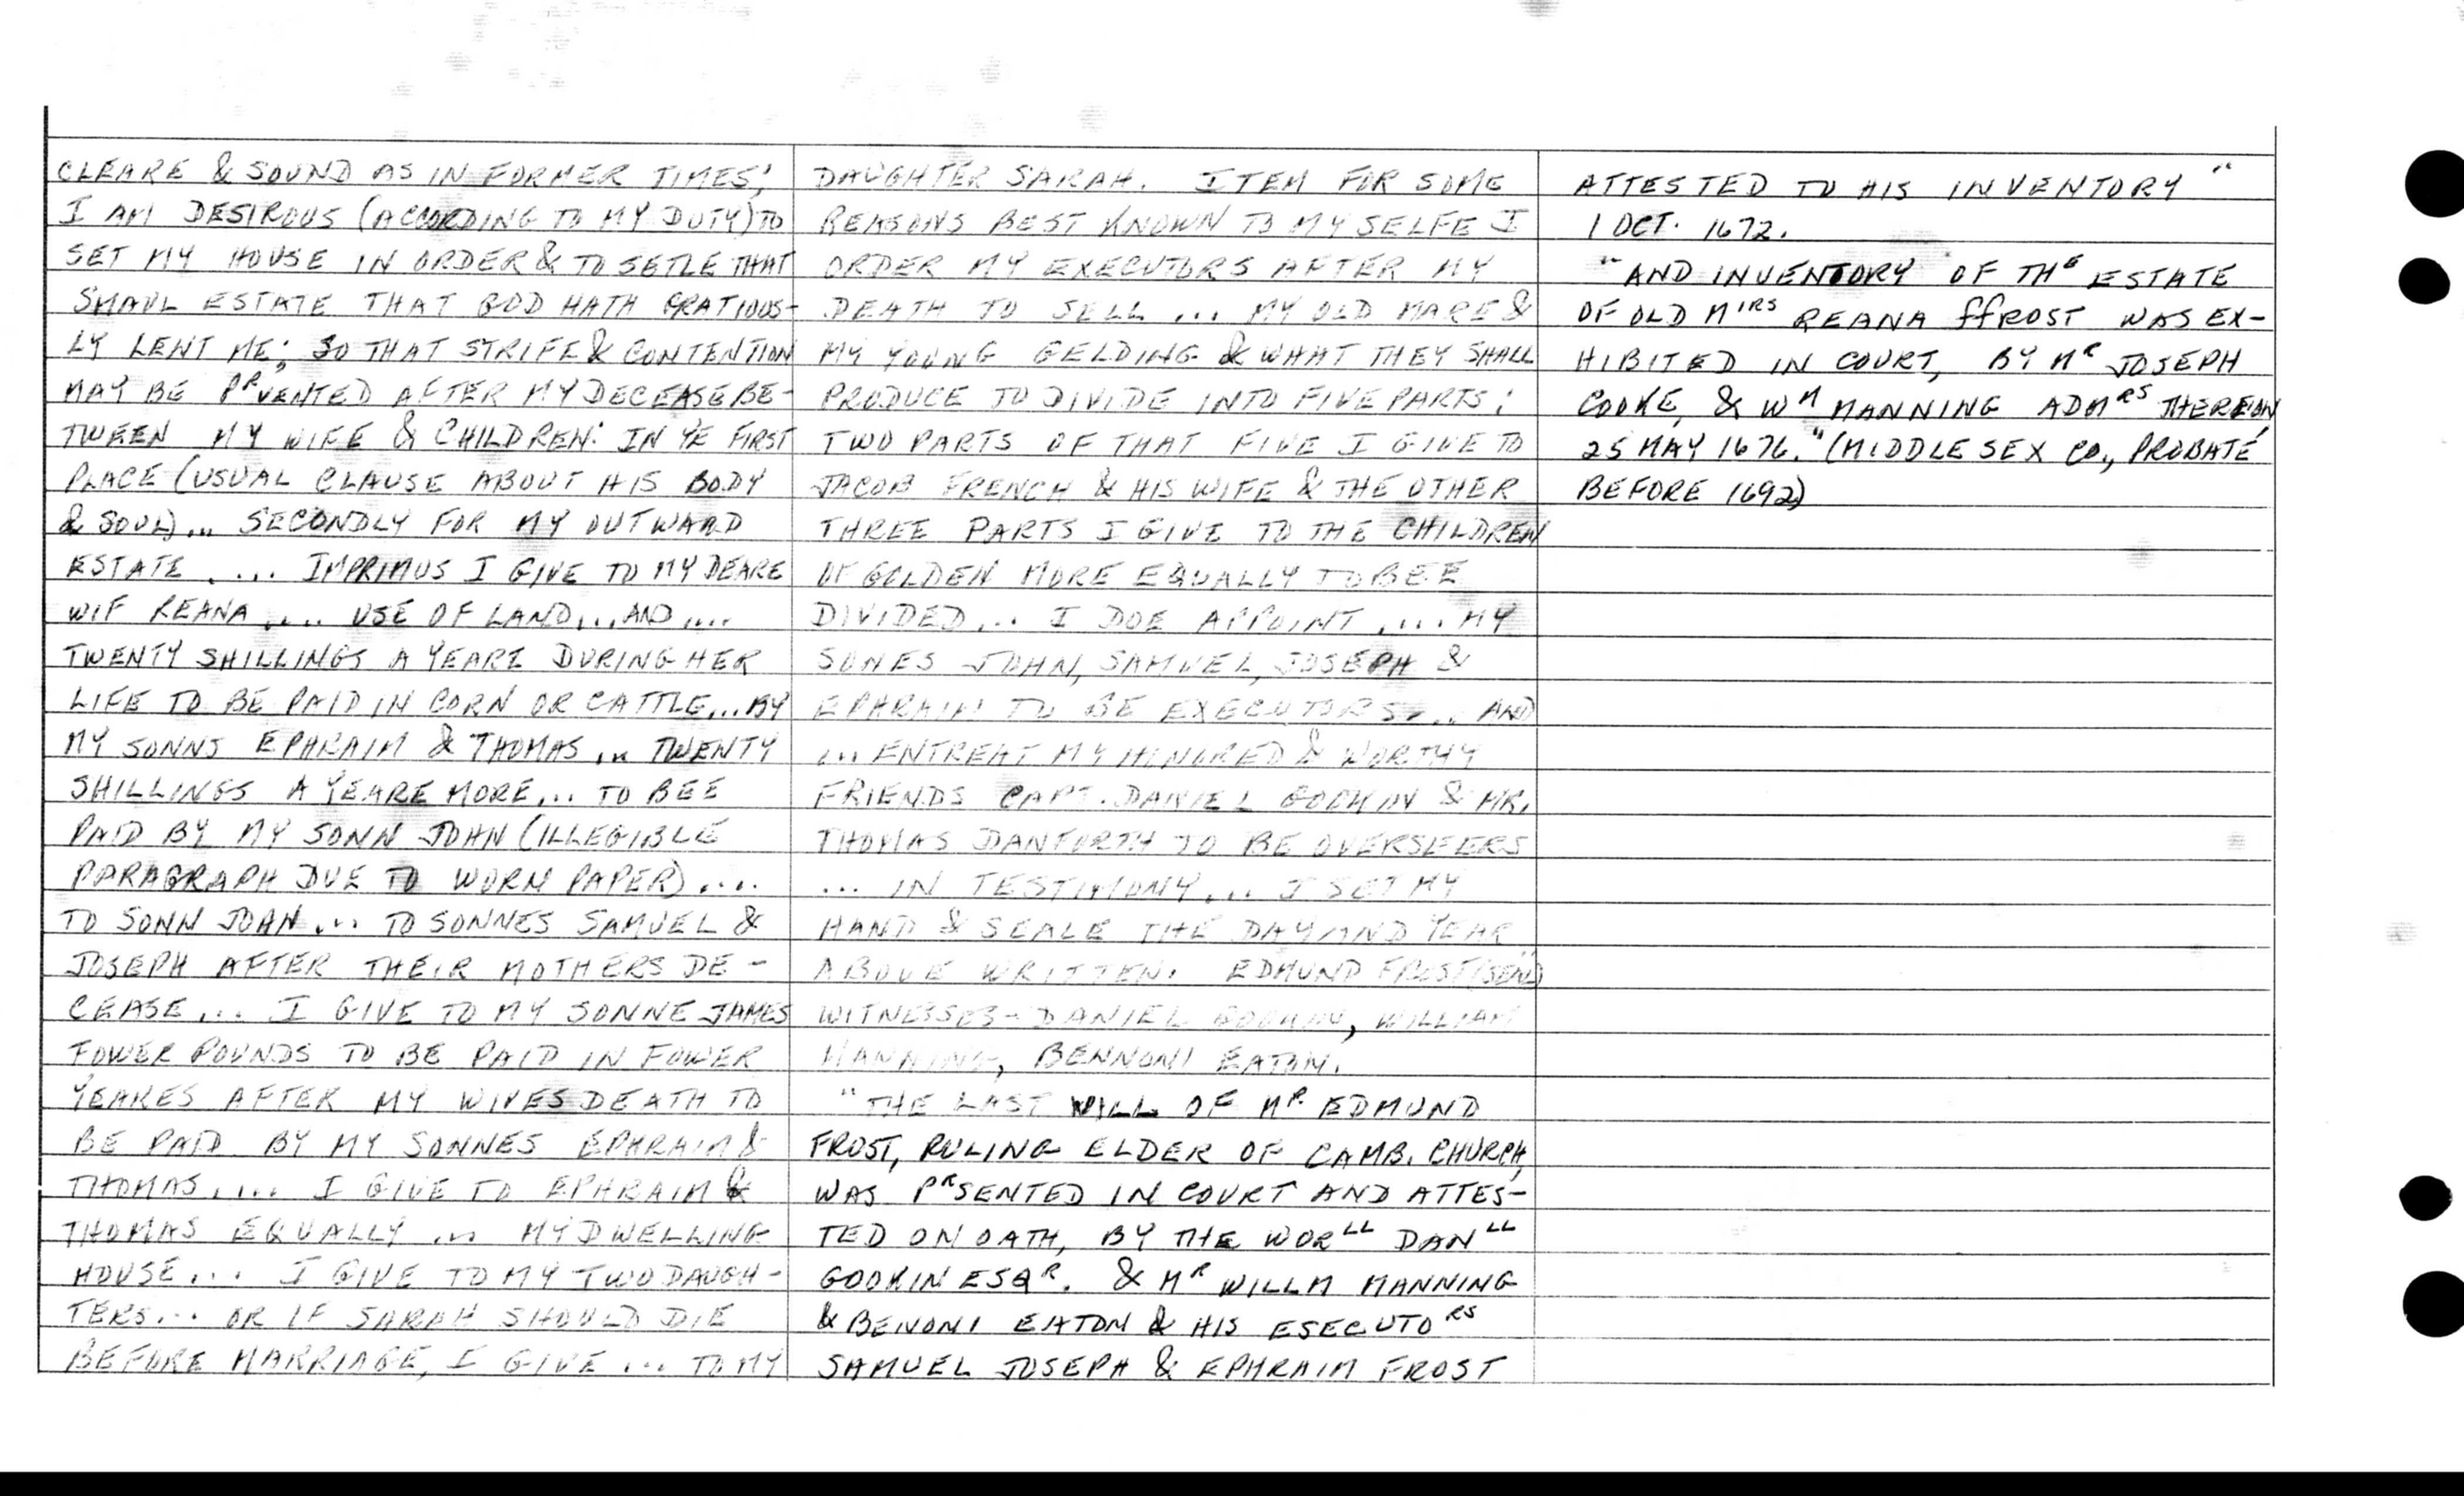 CLEARE & SOUND AS IN FORMER TIMES;
I AM DESIROUS (ACCORDING TO MY DUTY) TO
SET MY HOUSE IN ORDER & TO SETLE THAT
SMAUL ESTATE THAT GOD HATH GRATIOUS-
LY LENT ME; SO THAT STRIFE & CONTENTION
MAY BE PRVENTED AFTER MY DECEASE BE-
TWEEN MY WIFE & CHILDREN: IN YE FIRST
PLACE (USUAL CLAUSE ABOUT HIS BODY
& SOUL)... SECONDLY FOR MY OUTWARD
ESTATE .... IMPRIMUS I GIVE TO MY DEARE
WIF REANA .... USE OF LAND...AND....
TWENTY SHILLINGS A YEARE DURING HER
LIFE TO BE PAID IN CORN OR CATTLE...BY
MY SONNS EPHRAIM & THOMAS ... TWENTY
SHILLINGS A YEARE MORE... TO BEE
PAID BY MY SONN JOHN (ILLEGIBLE
PARAGRAPH DUE TO WORN PAPER)....
TO SONN JOHN... TO SONNES SAMUEL &
JOSEPH AFTER THEIR MOTHERS DE-
CEASE... I GIVE TO MY SONNE JAMES
FOWER POUNDS TO BE PAID IN FOWER
YEARES AFTER MY WIVES DEATH TO
BE PAID BY MY SONNES EPHRAIM &
THOMAS.... I GIVE TO EPHRAIM &
THOMAS EQUALLY ... MY DWELLING
HOUSE... I GIVE TO MY TWO DAUGH-
TERS... OR IF SARAH SHOULD DIE
BEFORE MARRIAGE, I GIVE ... TO MY
DAUGHTER SARAH. ITEM FOR SOME
REASONS BEST KNOWN TO MY SELFE I
ORDER MY EXECUTORS AFTER MY
DEATH TO SELL ... MY OLD MARE &
MY YOUNG GELDING & WHAT THEY SHALL
PRODUCE TO DIVIDE INTO FIVE PARTS:
TWO PARTS OF THAT FIVE I GIVE TO
JACOB FRENCH & HIS WIFE & THE OTHER
THREE PARTS I GIVE TO THE CHILDREN
OF GOLDEN MORE EQUALLY TO BEE
DIVIDED... I DOE APPOINT .... MY
SONES JOHN, SAMUEL, JOSEPH &
EPHRAIM TO BE EXECUTORS... AND
... ENTREAT MY HONORED & WORTHY
FRIENDS CAPT. DANIEL GOOKIN & MR.
THOMAS DANFORTH TO BE OVERSEERS
... IN TESTIMONY... I SET MY
HAND & SEALE THE DAY AND YEAR
ABOVE WRITTEN. EDMUND FROST (SEN)
WITNESSES - DANIEL GOOKIN, WILLIAM
MANNING, BENNONI EATON.
"THE LAST WILL OF MR EDMUND
FROST, RULING ELDER OF CAMB. CHURCH,
WAS PRSENTED IN COURT AND ATTES-
TED ON OATH, BY THE WORLL DANLL
GOOKIN ESQR. & MR WILLM MANNING
& BENONI EATON & HIS ESECUTORS
SAMUEL JOSEPH & EPHRAIM FROST
ATTESTED TO HIS INVENTORY"
1 OCT. 1672.
"AND INVENTORY OF THE ESTATE
OF OLD MIRS REANA ffROST WAS EX-
HIBITED IN COURT, BY MR JOSEPH
COOKE, & WM MANNING ADMRS THEREON
25 MAY 1676." (MIDDLESEX CO., PROBATE
BEFORE 1692)